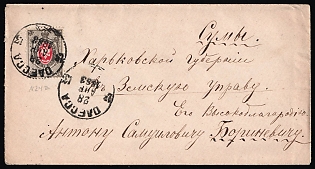 Сумы.
Харьковской Губернии
Земскую Управу
Его Высокоблагородію
Антону Самуиловичу Бориневичу.
ОДЕССА
28
АПР
1883